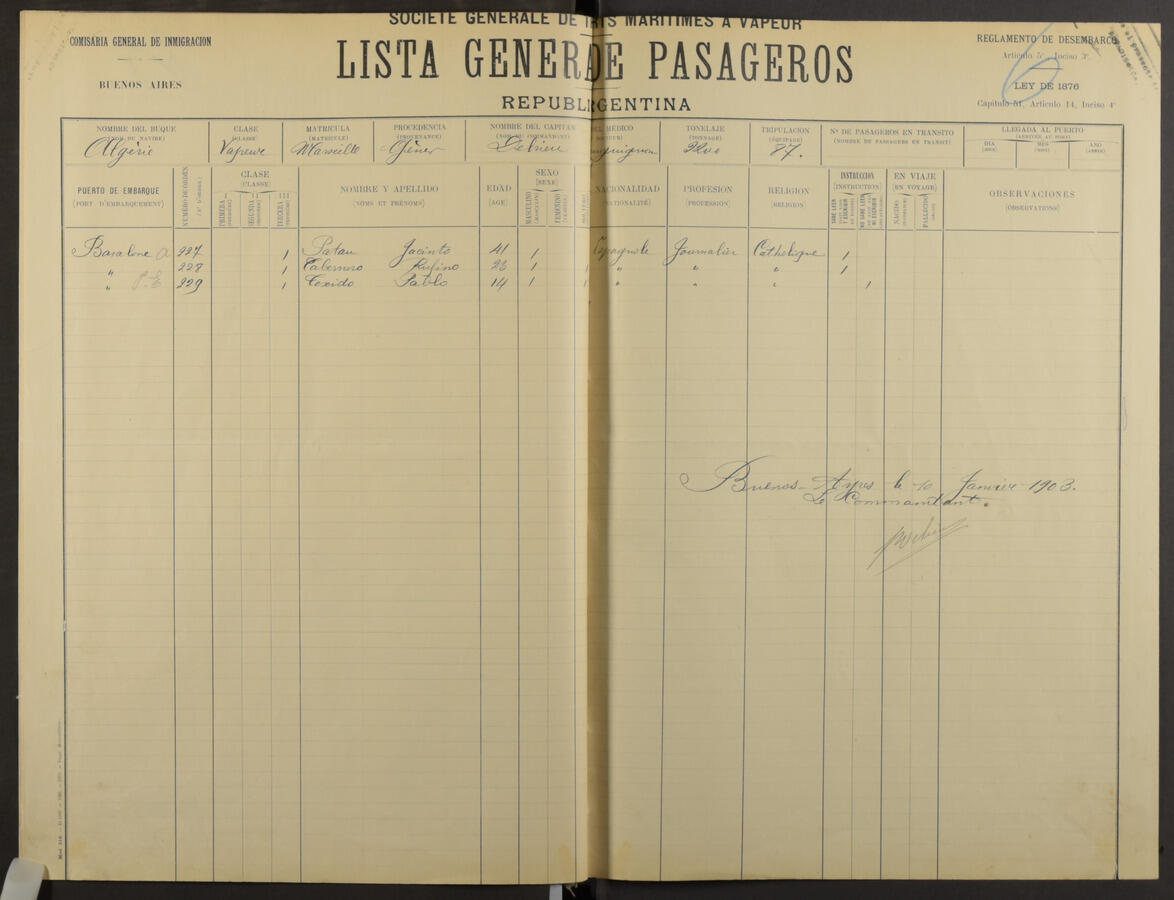 SOCIETE GENERALE DE RTS MARITIMES A VAPEUR
COMISARIA GENERAL DE INMIGRACION
BUENOS AIRES
LISTA GENER DE PASAGEROS
REPUBL RGENTINA
REGLAMENTO DE DESEMBARCO
Artículo 5º, Inciso 3º
LEY DE 1876
Capítulo 51, Artículo 14, Inciso 4º
6
NOMBRE DEL BUQUE (NOM DU NAVIRE) CLASE (CLASSE) MATRICULA (MATRICULE) PROCEDENCIA (PROVENANCE) NOMBRE DEL CAPITAN (NOM DU COMMANDANT) DEL MEDICO TONELAJE (TONNAGE) TRIPULACION (ÉQUIPAGE) Nº DE PASAGEROS EN TRANSITO (NOMBRE DE PASSAGERS EN TRANSIT) LLEGADA AL PUERTO (ARRIVÉE AU PORT)
DIA (JOUR) MES (MOIS) AÑO (ANNÉE)
Algérie Vapeur Marseille Gênes 87.
PUERTO DE EMBARQUE (PORT D'EMBARQUEMENT) NUMERO DE ORDEN (Nº D'ORDRE) CLASE (CLASSE) PRIMERA I SEGUNDA II TERCERA III NOMBRE Y APELLIDO (NOMS ET PRÉNOMS) EDAD (AGE) SEXO (SEXE) MASCULINO (MASCULIN) FEMENINO (FÉMININ) NACIONALIDAD (NATIONALITÉ) PROFESION (PROFESSION) RELIGION (RELIGION) INSTRUCCION (INSTRUCTION) EN VIAJE (EN VOYAGE) NACIDO FALLECIDO OBSERVACIONES (OBSERVATIONS)
Barcelone 227 1 Patau Jacinto 41 1 Espagnole Journalier Catholique 1
" 228 1 Tabernero Rufino 23 1 1 " " " 1
" 229 1 Texido Pablo 14 1 1 " " " 1
Buenos-Ayres le 10 Janvier 1903.
Le Commandant.